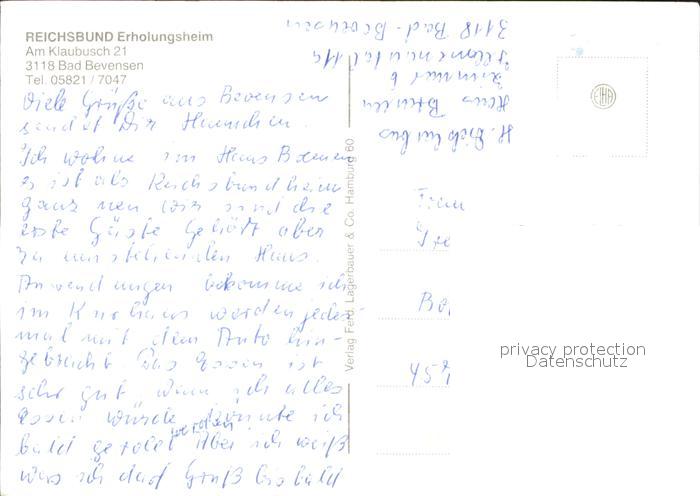 REICHSBUND Erholungsheim
Am Klaubusch 21
3118 Bad Bevensen
Tel. 05821 / 7047
Viele Grüße aus Bevensen
sendet Dir Hannchen.
Ich wohne im Haus Bremen
es ist als Reichsbundheim
ganz neu wir sind die
erste Gäste Gehört aber
zu umstehenden Haus.
Anwendungen bekomme ich
im Kurhaus werden jedes-
mal mit dem Auto hin-
gebracht Das Essen ist
sehr gut, wenn ich alles
essen würde könnte ich
bald gerollt werden Aber ich weiß
was ich darf Gruß bis bald
Verlag Ferd. Lagerbauer & Co. Hamburg 60
Haus Bremen
Zimmer 6
3118 Bad-Bevensen
Frau
Be
457
EHA
privacy protection
Datenschutz